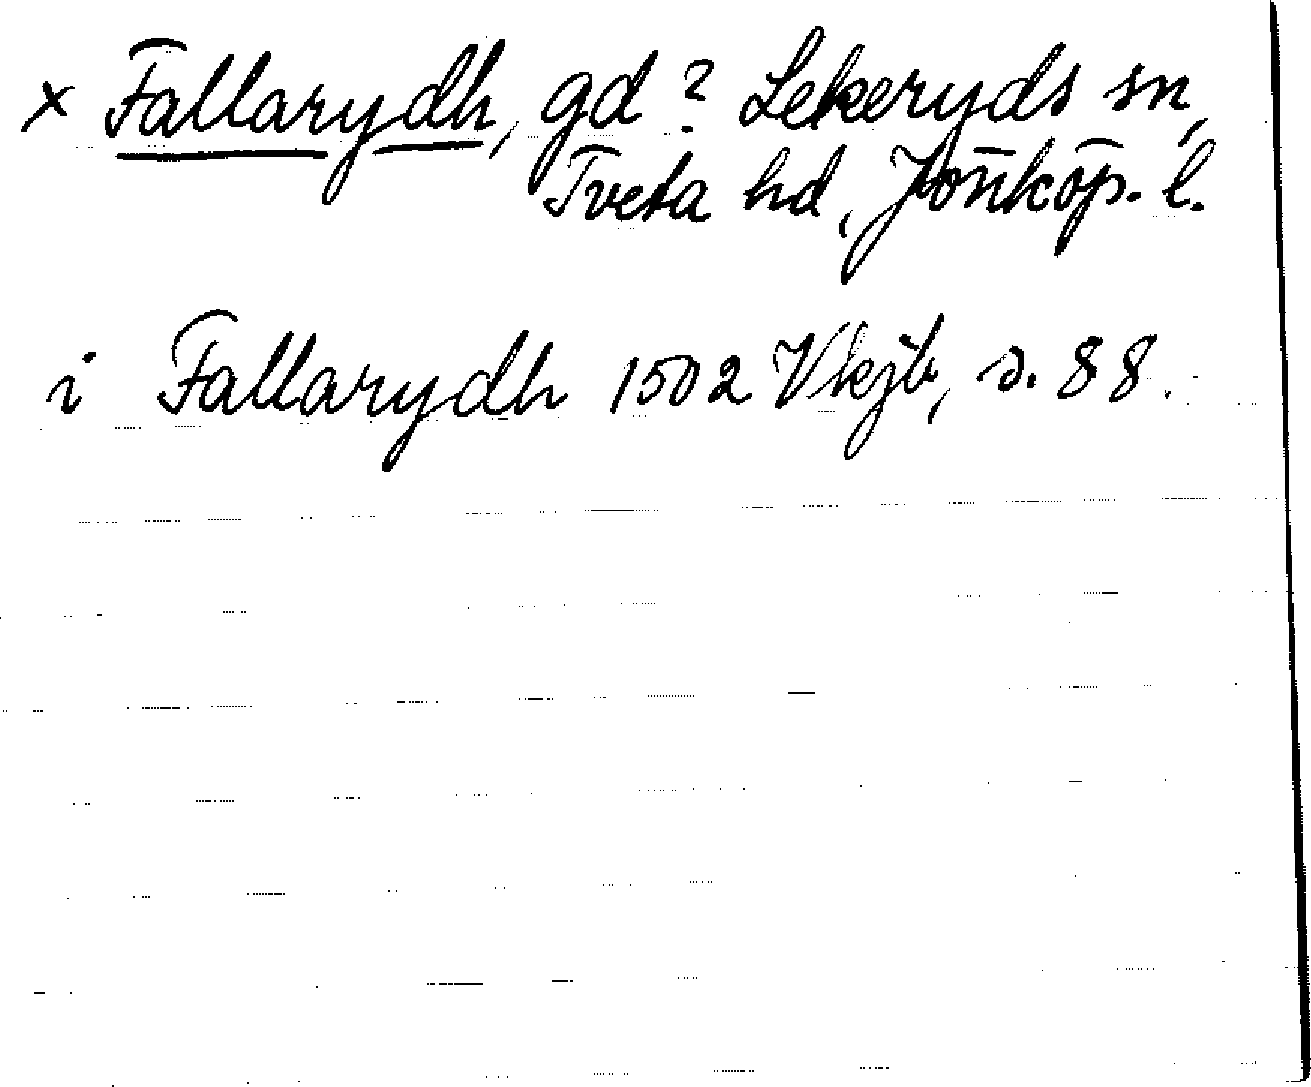 x Fallarydh, gd? Lekeryds sn,
Tveta hd, Jönköp. l.
i Fallarydh 1502 Vkjb, s. 88.